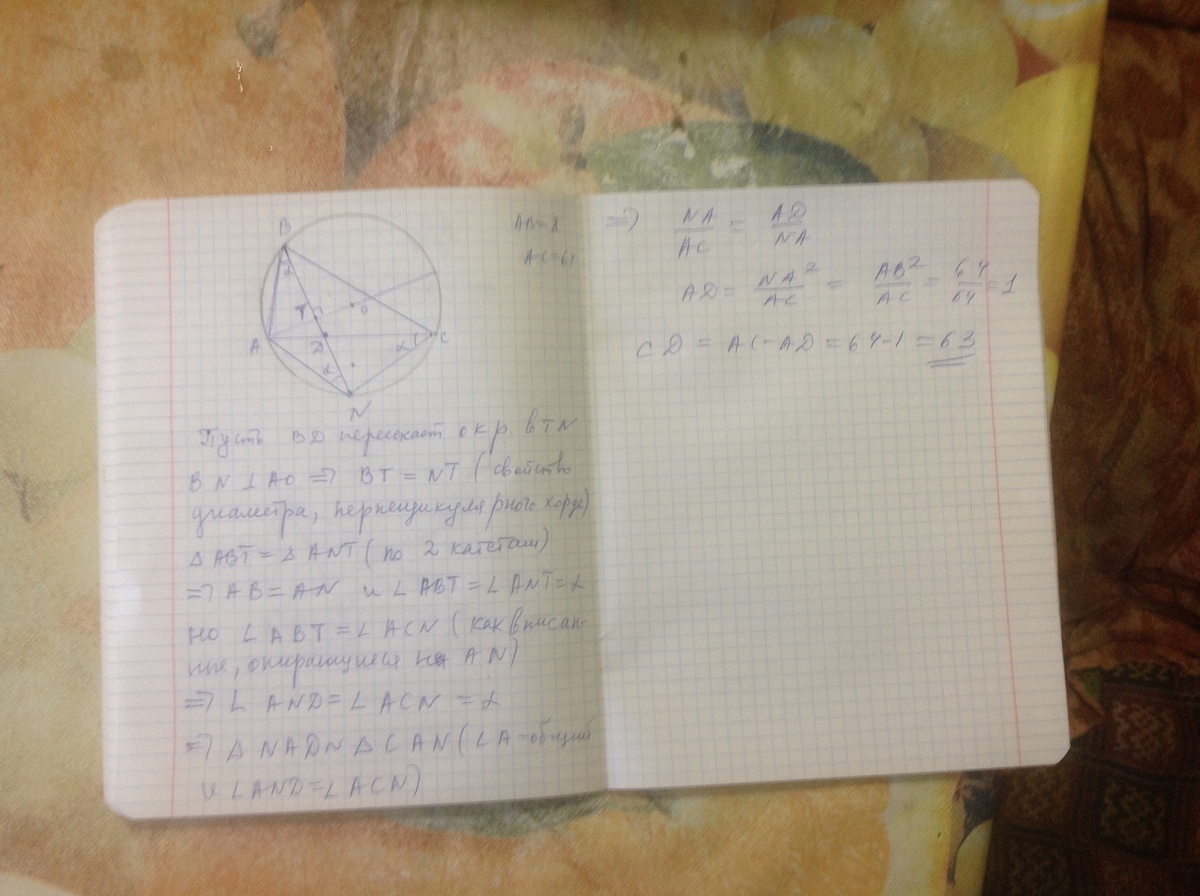 B
α
T
O
A
D
C
α
α
N
AB=8
AC=64
Пусть BD пересекает окр. в т N
BN ⊥ AO ⇒ BT = NT (свойство
диаметра, перпендикулярного хорде)
△ ABT = △ ANT (по 2 катетам)
⇒ AB = AN и ∠ ABT = ∠ ANT = α
но ∠ ABT = ∠ ACN (как вписан-
ные, опирающиеся на AN)
⇒ ∠ AND = ∠ ACN = α
⇒ △ NAD ~ △ CAN (∠A - общий
и ∠AND = ∠ACN)
⇒ NA/AC = AD/NA
AD = NA²/AC = AB²/AC = 64/64 = 1
CD = AC - AD = 64 - 1 = 63